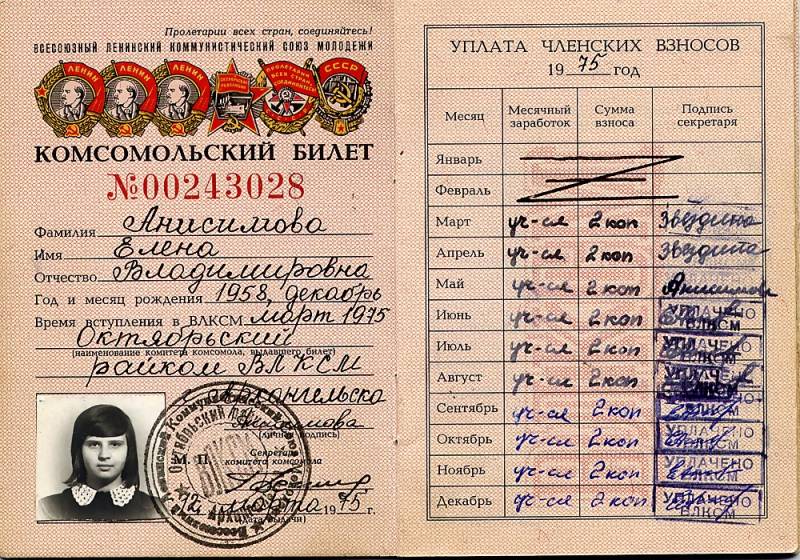 Пролетарии всех стран, соединяйтесь!
ВСЕСОЮЗНЫЙ ЛЕНИНСКИЙ КОММУНИСТИЧЕСКИЙ СОЮЗ МОЛОДЕЖИ
ЛЕНИН ЛЕНИН ЛЕНИН СССР
КОМСОМОЛЬСКИЙ БИЛЕТ
№00243028
Фамилия Анисимова
Имя Елена
Отчество Владимировна
Год и месяц рождения 1958, декабрь
Время вступления в ВЛКСМ март 1975
Октябрьский
(наименование комитета комсомола, выдавшего билет)
райком ВЛКСМ
г. Архангельска
Анисимова
(личная подпись)
М. П. Секретарь
комитета комсомола
12 марта 1975 г.
(дата выдачи)
УПЛАТА ЧЛЕНСКИХ ВЗНОСОВ
1975 год
Месяц Месячный заработок Сумма взноса Подпись секретаря
Январь
Февраль
Март уч-ся 2 коп Звездина
Апрель уч-ся 2 коп Звездина
Май уч-ся 2 коп Анисимова
Июнь уч-ся 2 коп УПЛАЧЕНО ВЛКСМ
Июль уч-ся 2 коп УПЛАЧЕНО ВЛКСМ
Август уч-ся 2 коп УПЛАЧЕНО ВЛКСМ
Сентябрь уч-ся 2 коп УПЛАЧЕНО ВЛКСМ
Октябрь уч-ся 2 коп УПЛАЧЕНО ВЛКСМ
Ноябрь уч-ся 2 коп УПЛАЧЕНО ВЛКСМ
Декабрь уч-ся 2 коп УПЛАЧЕНО ВЛКСМ